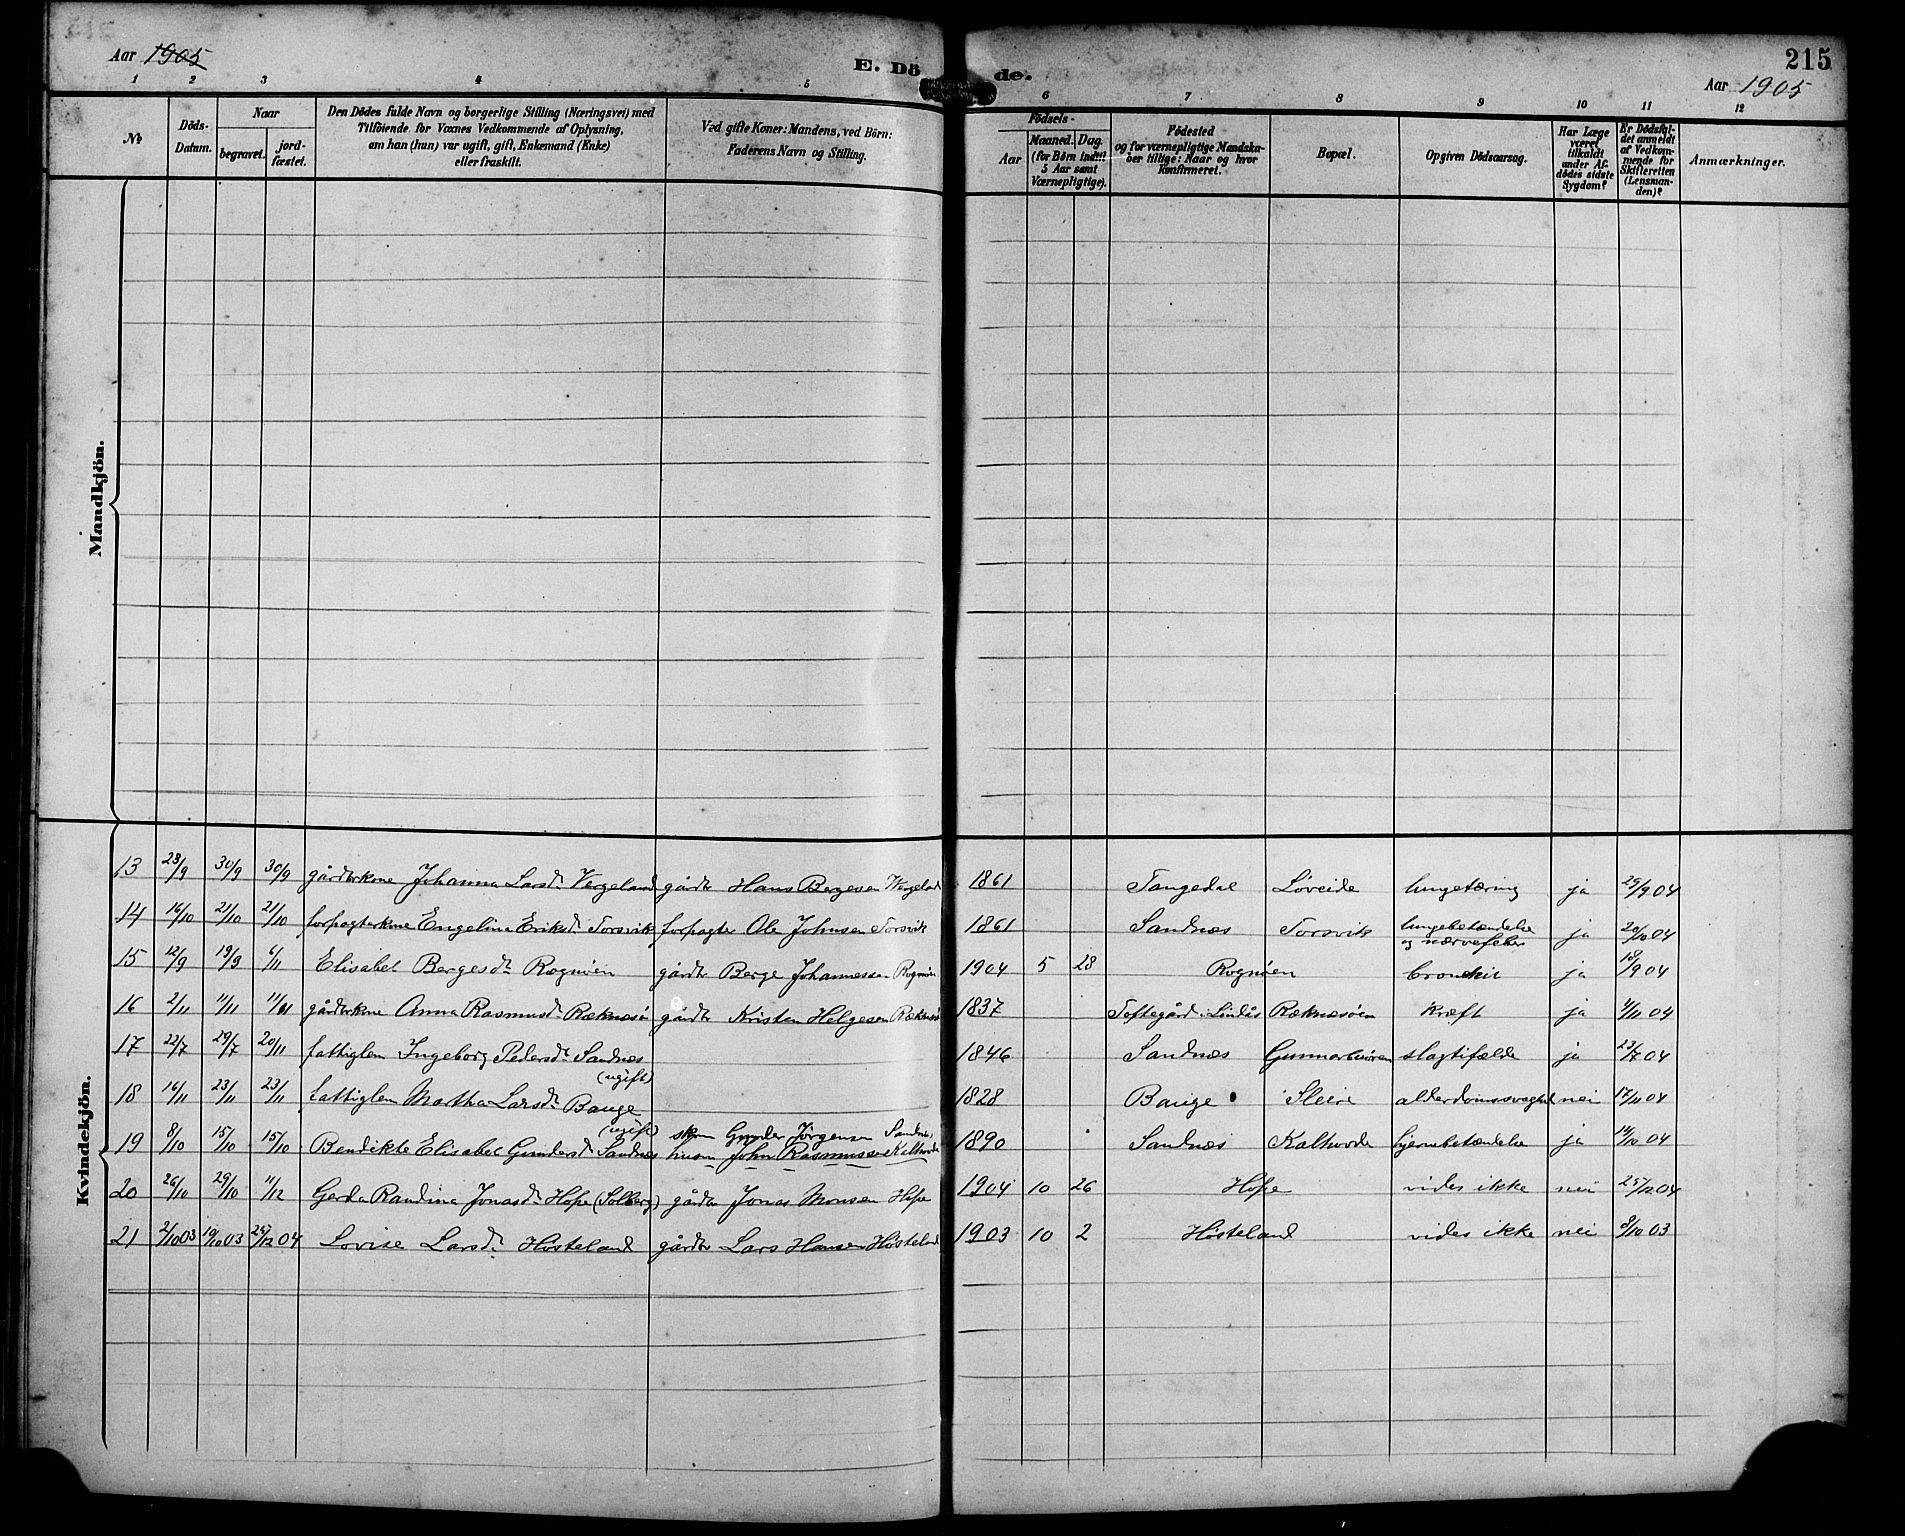 Aar 1905
E. Döde.
215
Aar 1905
1 2 3 4 5 6 7 8 9 10 11 12
No
Döds-Datum.
Naar
begravet.
jord-fæstet.
Den Dödes fulde Navn og borgerlige Stilling (Næringsvei) med
Tilföiende for Voxnes Vedkommende af Oplysning,
om han (hun) var ugift, gift, Enkemand (Enke)
eller fraskilt.
Ved gifte Koner: Mandens, ved Börn:
Faderens Navn og Stilling.
Födsels-
Aar
Maaned. Dag.
(for Börn indtil
5 Aar samt
Værnepligtige).
Födested
og for værnepligtige Mandska-
ber tillige: Naar og hvor
konfirmeret.
Bopæl.
Opgiven Dödsaarsag.
Har Læge
været
tilkaldt
under Af-
dödes sidste
Sygdom?
Er Dödsfal-
det anmeldt
af Vedkom-
mende for
Skifteretten
(Lensman-
den)?
Anmærkninger.
Mandkjön.
Kvindekjön.
13 23/9 30/9 30/9 gårdbrkone Johanna Larsdr Vergeland gårdbr Hans Bergesen Vergeland 1861 Tangedal Løveide lungetæring ja 29/9 04
14 16/10 21/10 21/10 forpagterkone Engelina Eriksdr Torsvik forpagter Ole Johnsen Torsvik 1861 Sandnæs Torsvik lungebetændelse og nærvefeber ja 20/10 04
15 12/9 19/9 6/11 Elisabet Bergesdr Rognøen gårdbr Berge Johannessen Rognøen 1904 5 28 Rognøen bronkit ja 18/9 04
16 2/11 11/11 11/11 gårdbrkone Anna Rasmusdr Ræknesø gårdbr Kristen Helgesen Ræknesø 1837 Toftegård i Lindås Ræknesøen Kræft ja 4/11 04
17 22/7 29/7 20/11 fattiglem Ingeborg Pedersdr Sandnæs (ugift) 1846 Sandnæs slagtifælde ja 23/7 04
18 16/11 23/11 23/11 fattiglem Martha Larsdr Bauge (ugift) 1828 Bauge Sleire alderdomssvaghed nei 17/11 04
19 8/10 15/10 15/10 Bendikte Elisabet Gundersdr Sandnæs skom Gunder Jørgensen Sandnæs
husm John Rasmussen Kalhovde 1890 Sandnæs Kalhovde hjernebetændelse ja 14/10 04
20 26/10 29/10 11/12 Gerda Randina Jonasdr Hope (Solberg) gårdbr Jonas Monsen Hope 1904 10 26 Hope vides ikke nei 04
21 2/10 03 19/10 03 04 Lovise Larsdr Høsteland gårdbr Lars Hansen Høsteland 1903 10 2 Høsteland vides ikke nei 8/10 03